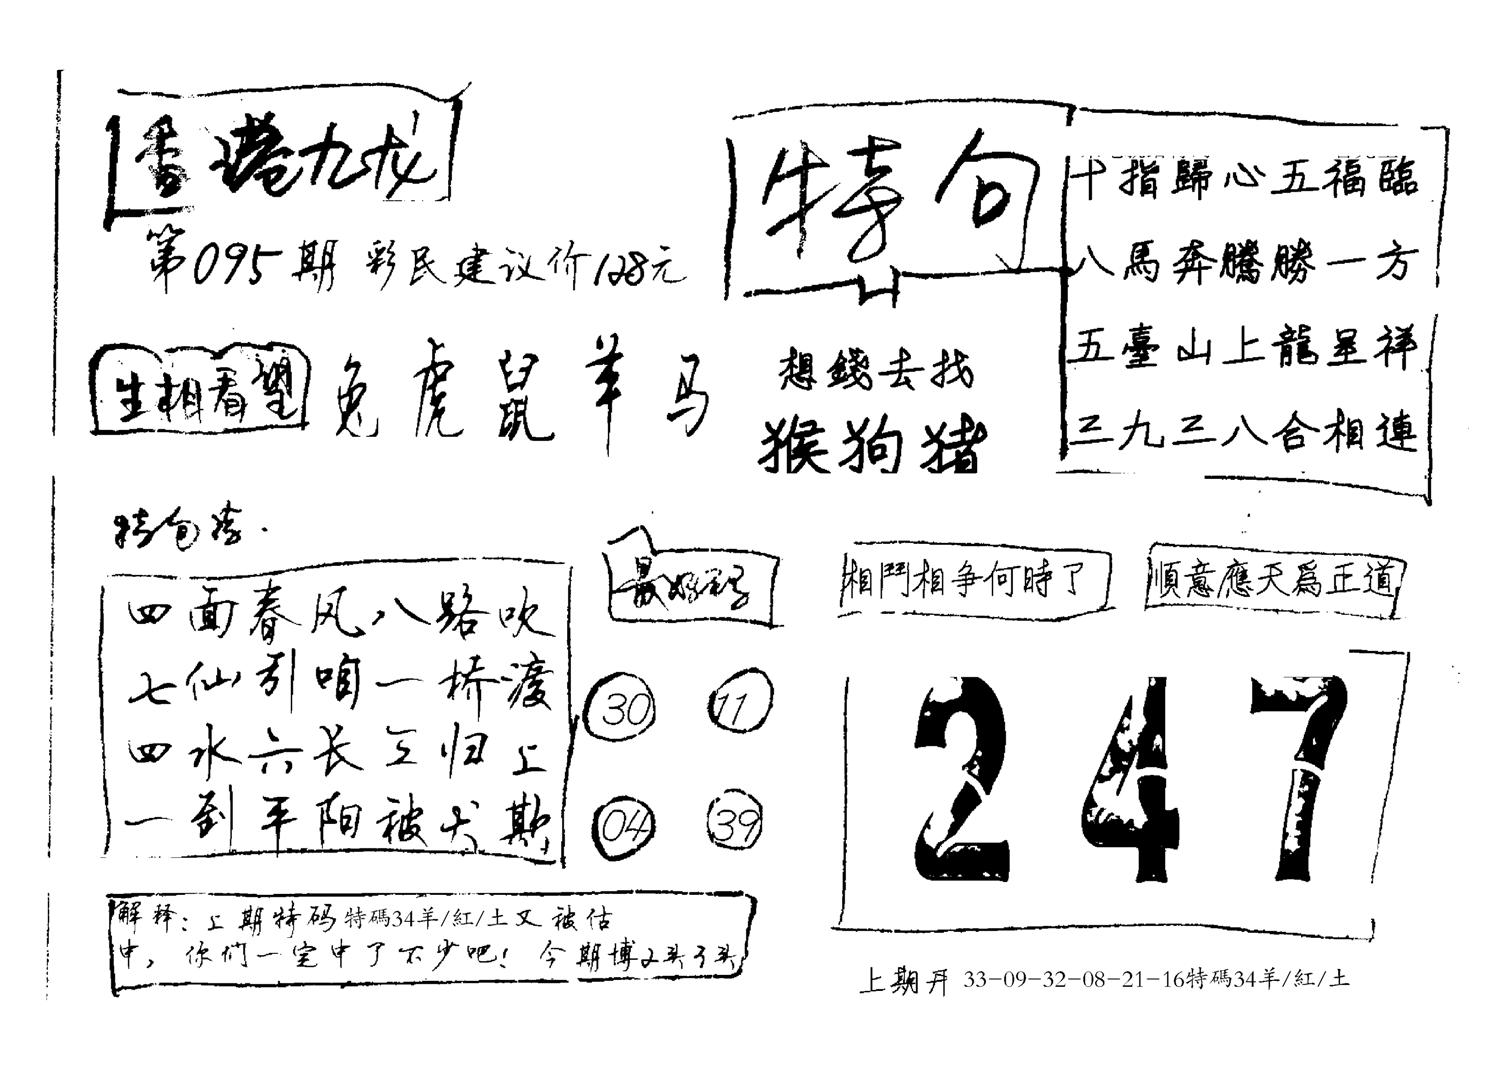 香港九龙
第095期 彩民建议价128元
特句
十指歸心五福臨
八馬奔騰勝一方
五臺山上龍呈祥
三九三八合相連
生相看望 兔虎鼠羊马
想錢去找
猴狗猪
特句诗.
四面春风八路吹
七仙引咱一桥渡
四水六长三归上
一到平阳被犬欺
最好码
30 11
04 39
相鬥相争何時了
順意應天為正道
247
解释：上期特码特碼34羊/紅/土又被估
中，你們一定中了不少吧！今期博2头3头
上期开 33-09-32-08-21-16特碼34羊/紅/土